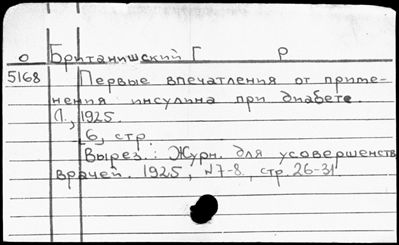 о Британишский Г Р
5168 Первые впечатления от приме-
нения инсулина при диабете.
Л., 1925.
6, стр.
Вырез.: Журн. для усовершенств
врачей. 1925, №7-8, стр. 26-31